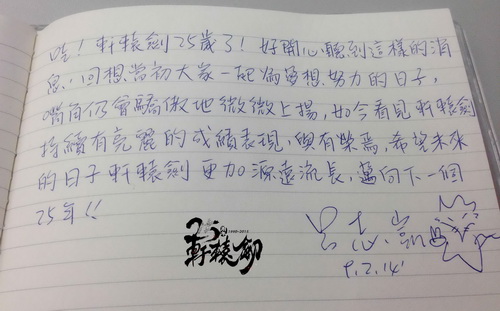 哇！軒轅劍25歲了！好開心聽到這樣的消
息，回想當初大家一起為夢想努力的日子，
嘴角仍會驕傲地微微上揚，如今看見軒轅劍
持續有亮麗的成績表現，與有榮焉，希望未來
的日子軒轅劍更加源遠流長，邁向下一個
25年！！
吳志凱
9.2.14'
25th
1990-2015
軒轅劍